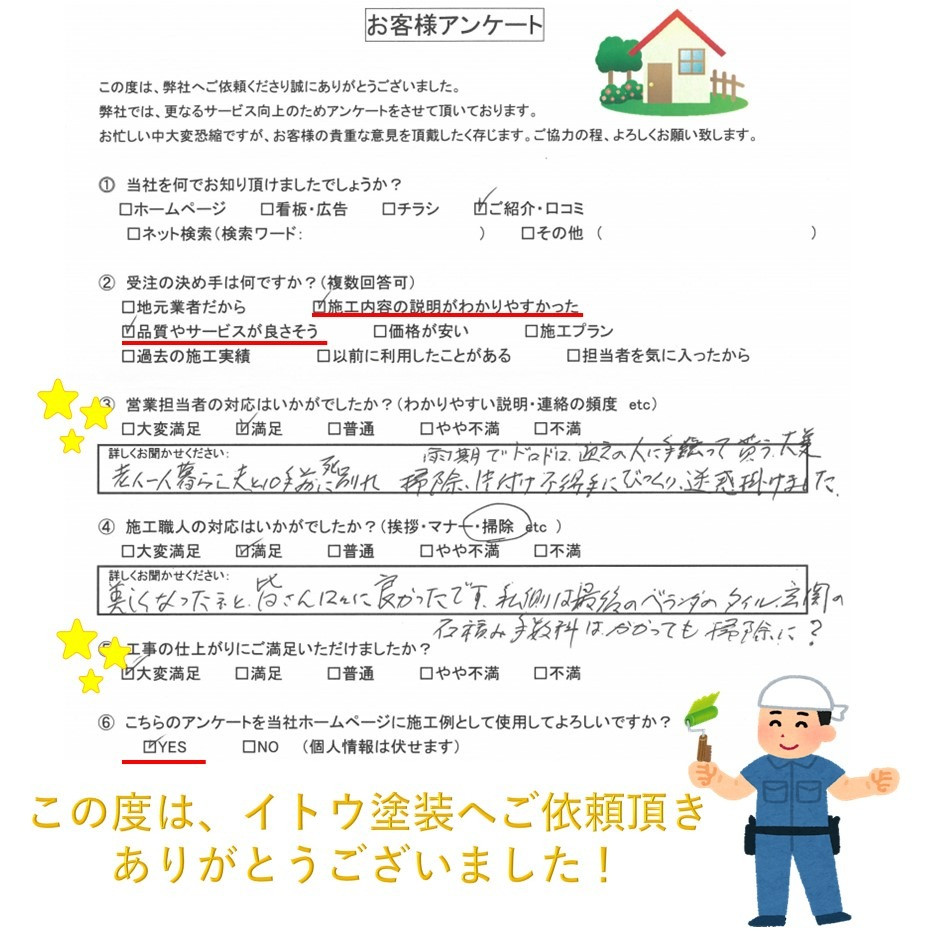 お客様アンケート
この度は、弊社へご依頼くださり誠にありがとうございました。
弊社では、更なるサービス向上のためアンケートをさせて頂いております。
お忙しい中大変恐縮ですが、お客様の貴重な意見を頂戴したく存じます。ご協力の程、よろしくお願い致します。
① 当社を何でお知り頂けましたでしょうか？
□ホームページ □看板・広告 □チラシ ☑ご紹介・口コミ
□ネット検索（検索ワード： ） □その他 （ ）
② 受注の決め手は何ですか？（複数回答可）
□地元業者だから ☑施工内容の説明がわかりやすかった
☑品質やサービスが良さそう □価格が安い □施工プラン
□過去の施工実績 □以前に利用したことがある □担当者を気に入ったから
③ 営業担当者の対応はいかがでしたか？（わかりやすい説明・連絡の頻度 etc）
□大変満足 ☑満足 □普通 □やや不満 □不満
詳しくお聞かせください：
雨期でドロドロ、近所の人に手伝って貰う、大変
老人一人暮らし夫と10年前に死別れ 掃除、片付け不得手にびっくり、迷惑掛けました
④ 施工職人の対応はいかがでしたか？（挨拶・マナー・掃除 etc ）
□大変満足 ☑満足 □普通 □やや不満 □不満
詳しくお聞かせください：
美しくなったネと、皆さん口々に 良かったです、私側は最後のベランダのタイル、玄関の
石積み手数料はかかっても掃除に？
⑤ 工事の仕上がりにご満足いただけましたか？
☑大変満足 □満足 □普通 □やや不満 □不満
⑥ こちらのアンケートを当社ホームページに施工例として使用してよろしいですか？
☑YES □NO （個人情報は伏せます）
この度は、イトウ塗装へご依頼頂き
ありがとうございました！